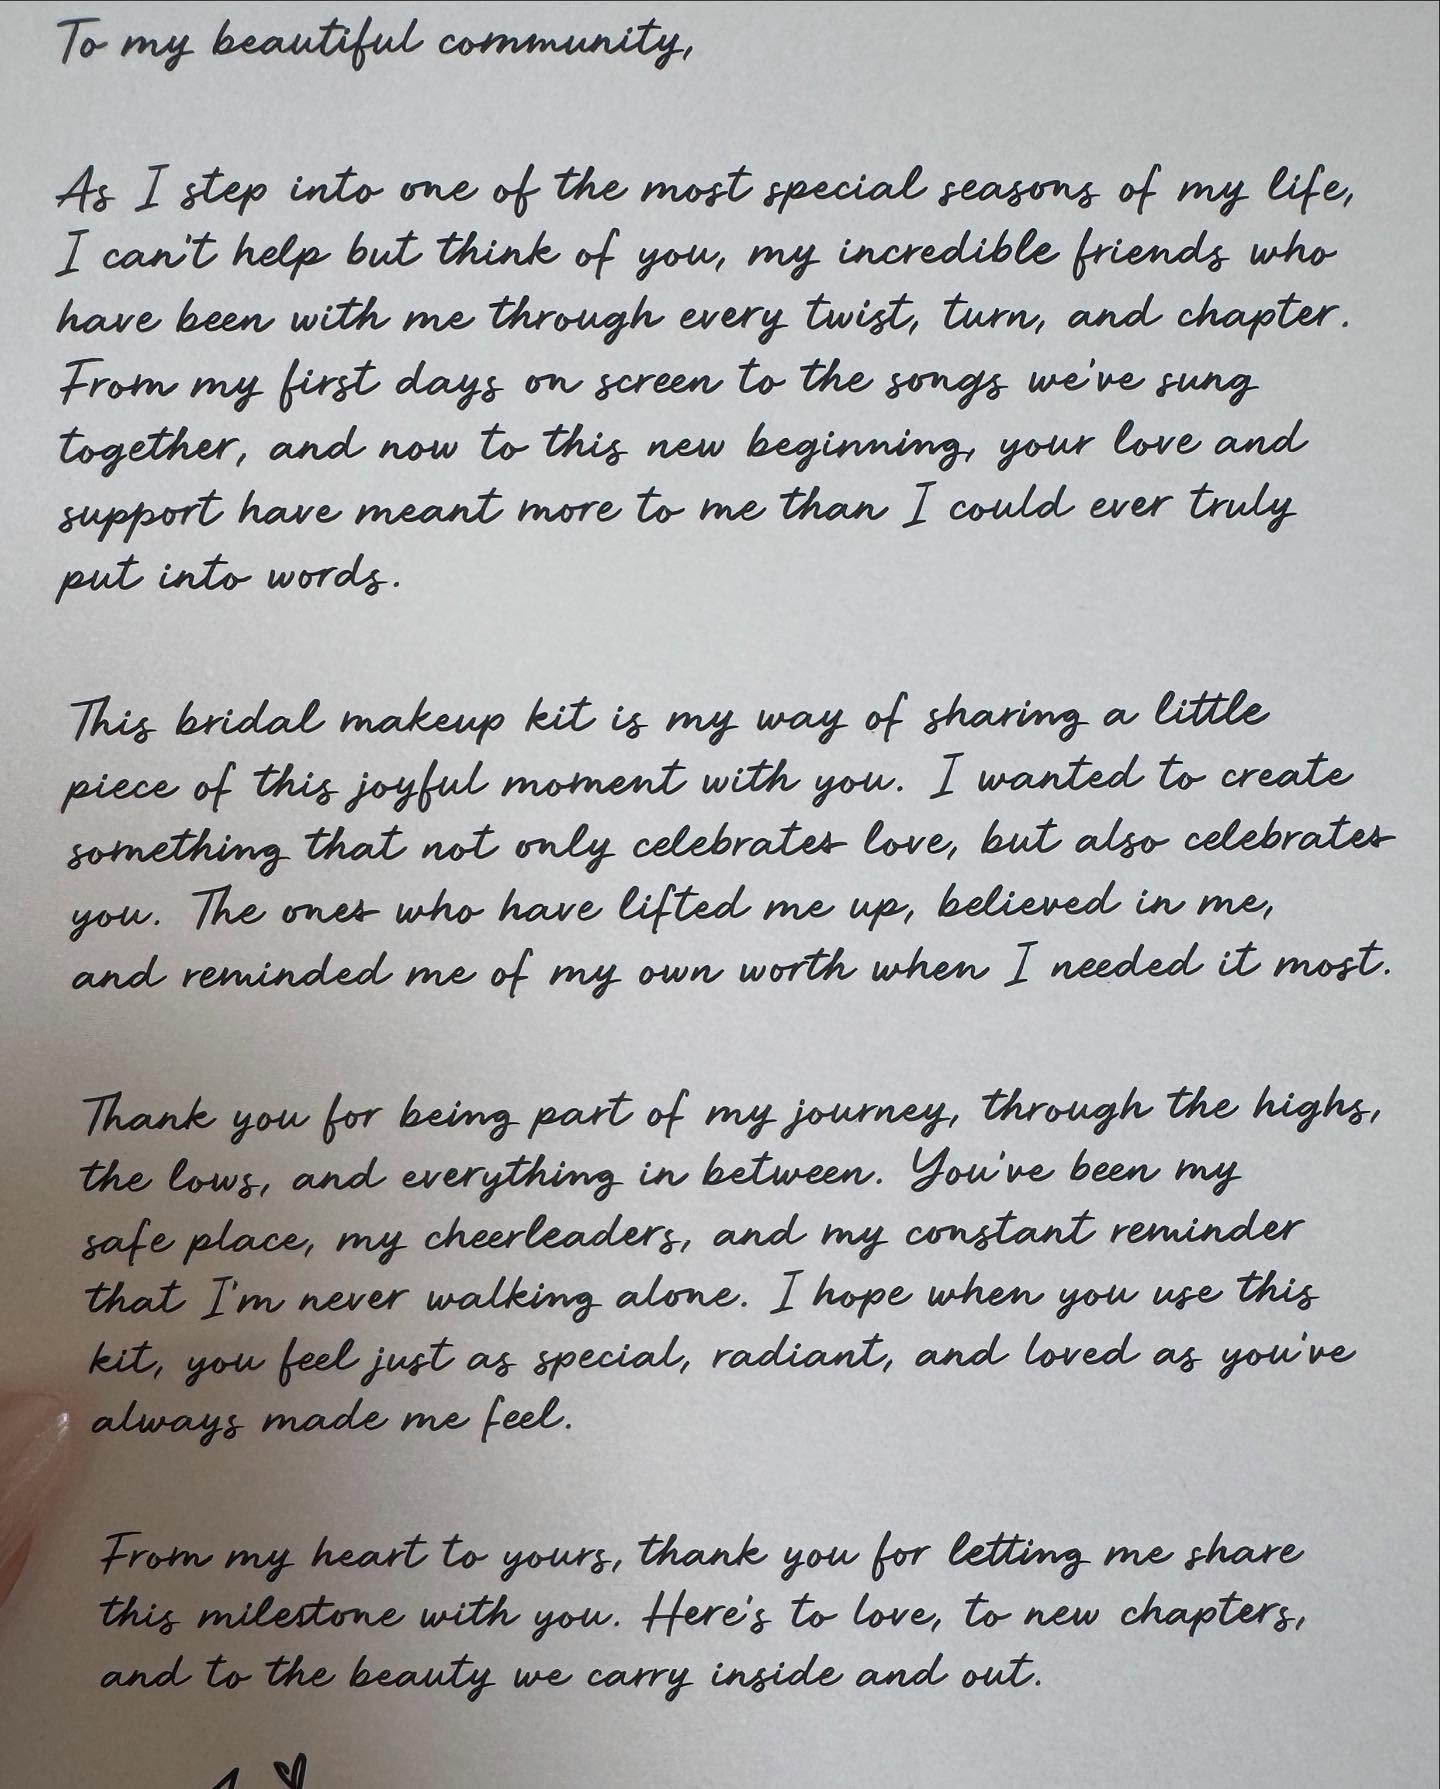 To my beautiful community,
As I step into one of the most special seasons of my life,
I can't help but think of you, my incredible friends who
have been with me through every twist, turn, and chapter.
From my first days on screen to the songs we've sung
together, and now to this new beginning, your love and
support have meant more to me than I could ever truly
put into words.
This bridal makeup kit is my way of sharing a little
piece of this joyful moment with you. I wanted to create
something that not only celebrates love, but also celebrates
you. The ones who have lifted me up, believed in me,
and reminded me of my own worth when I needed it most.
Thank you for being part of my journey, through the highs,
the lows, and everything in between. You've been my
safe place, my cheerleaders, and my constant reminder
that I'm never walking alone. I hope when you use this
kit, you feel just as special, radiant, and loved as you've
always made me feel.
From my heart to yours, thank you for letting me share
this milestone with you. Here's to love, to new chapters,
and to the beauty we carry inside and out.